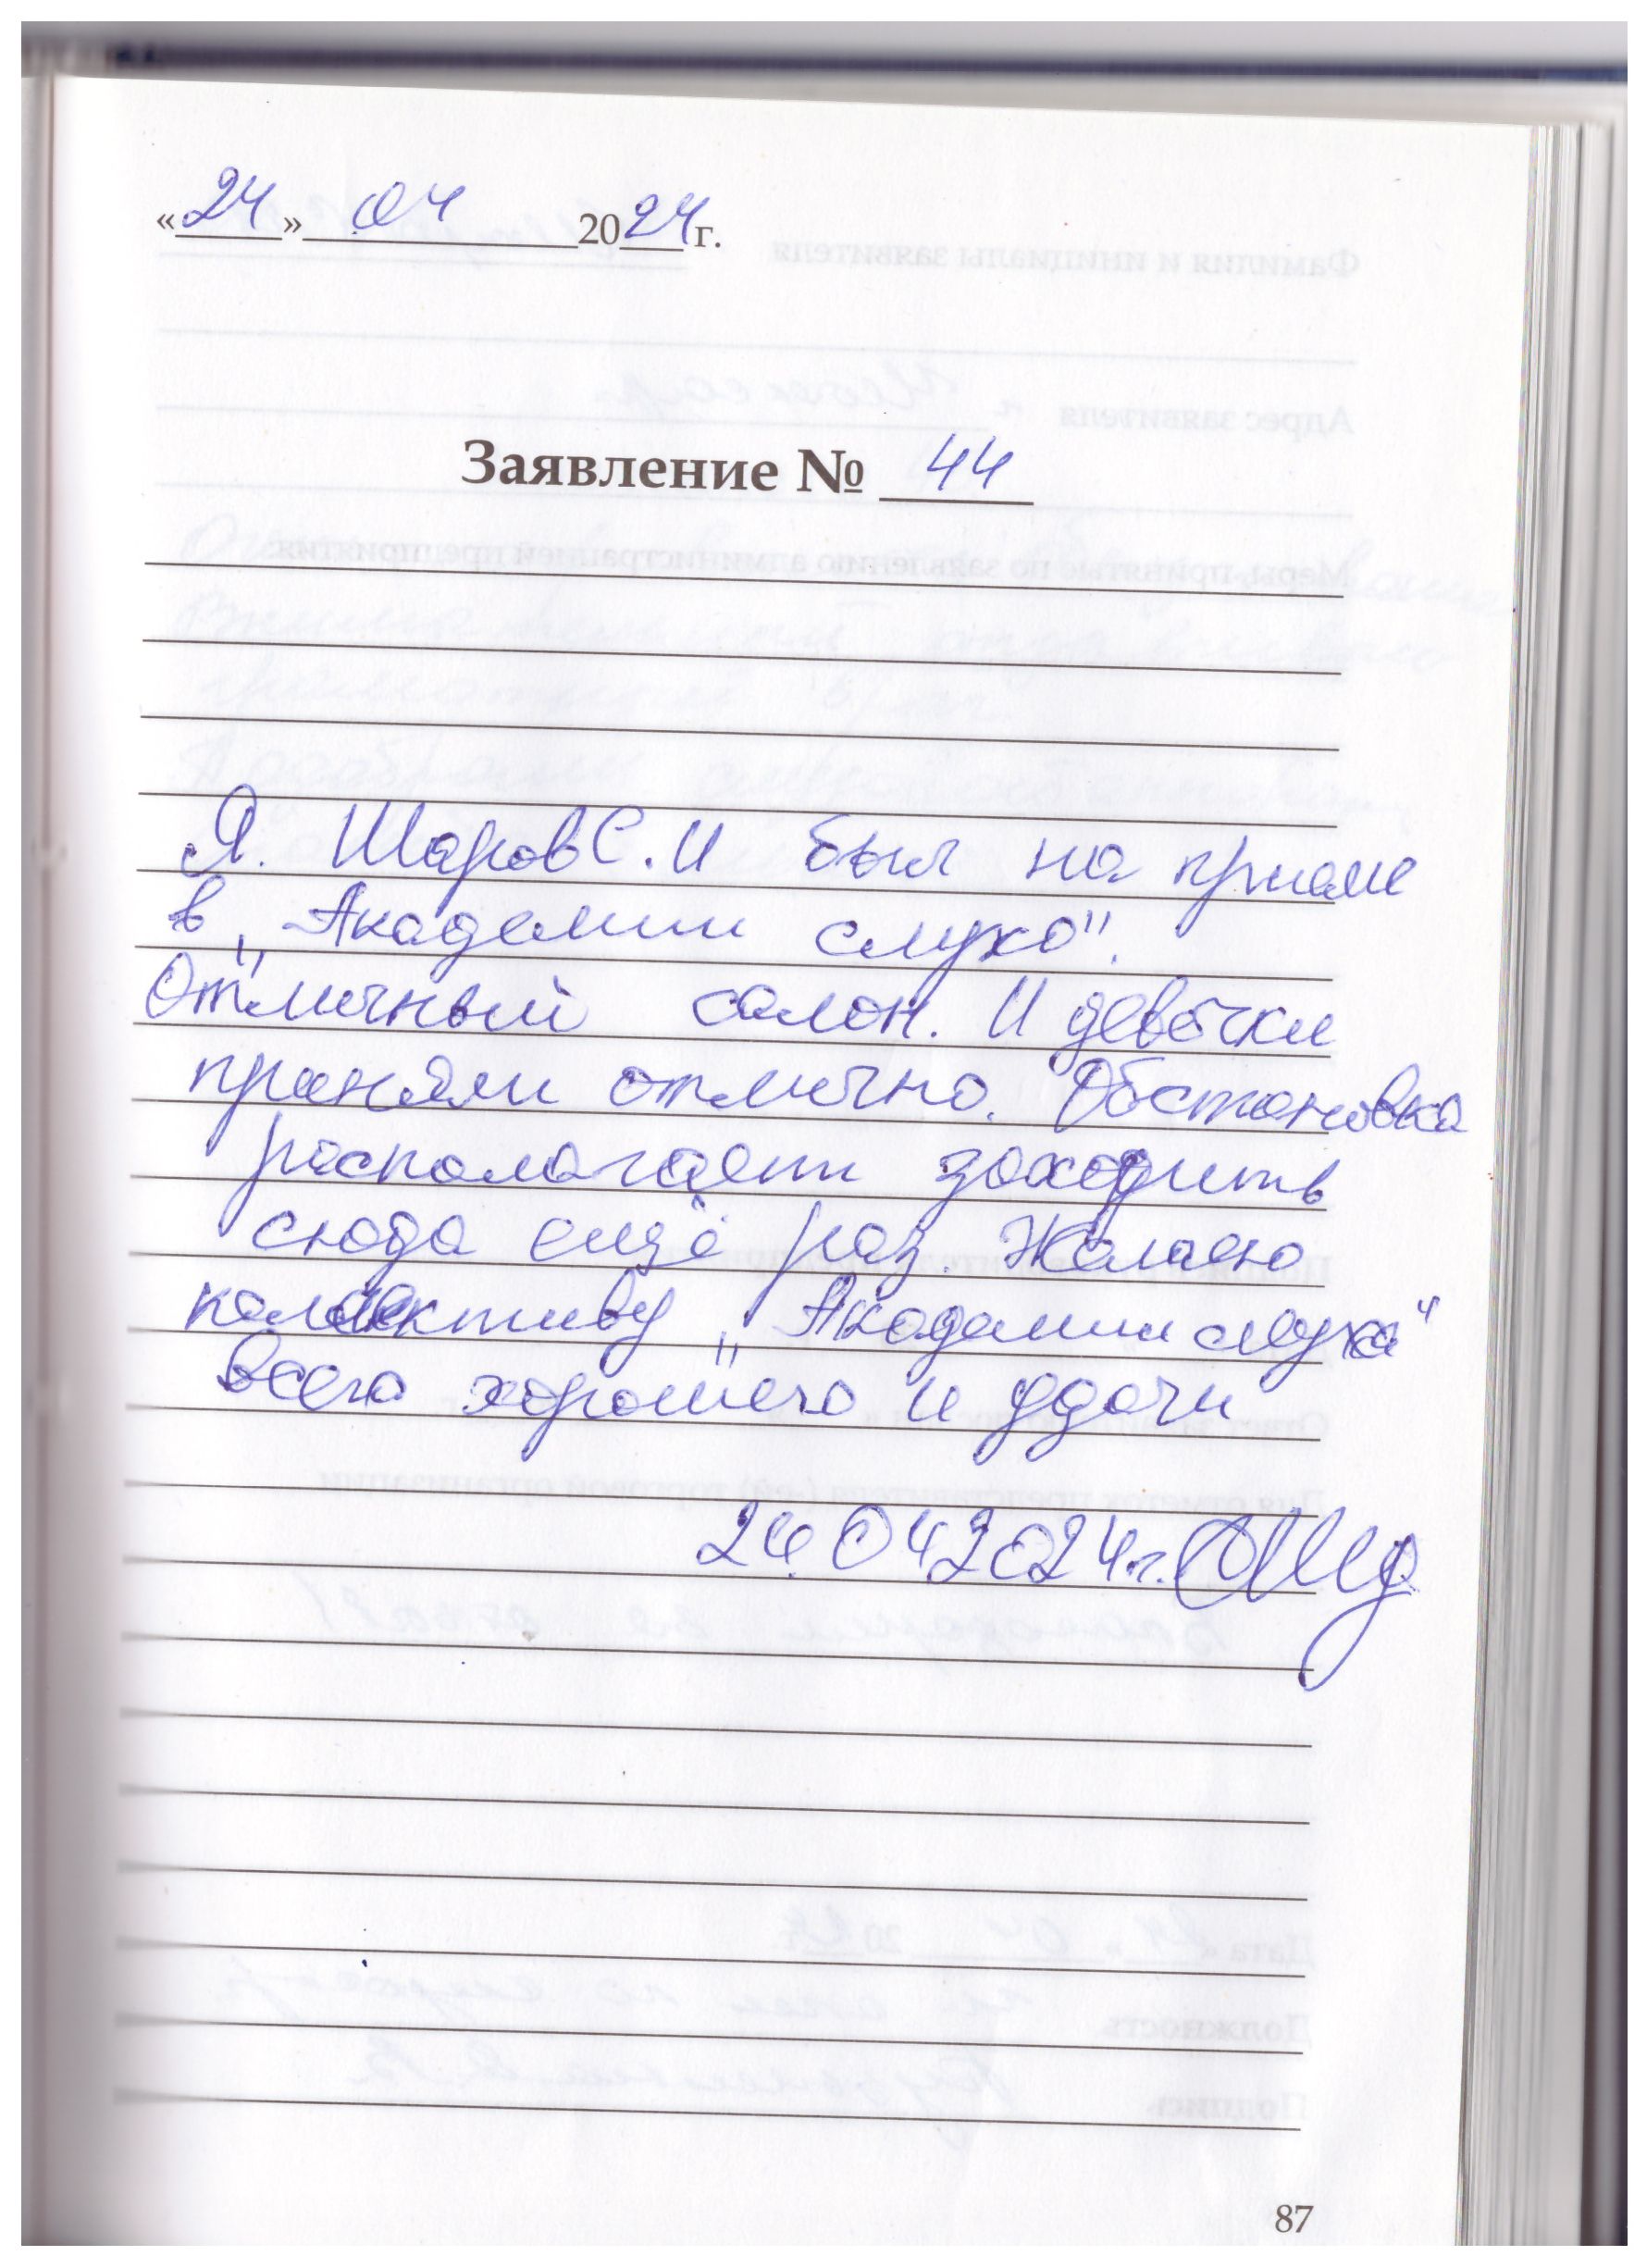 «24» 04 2024 г.
Заявление № 44
Я. Шаров С.И был на приеме
в „Академии слуха".
Отличный салон. И девочки
приняли отлично. Обстановка
располагает заходить
сюда ещё раз. Желаю
коллективу „Академии слуха"
всего хорошего и удачи
24.04.2024г.
87